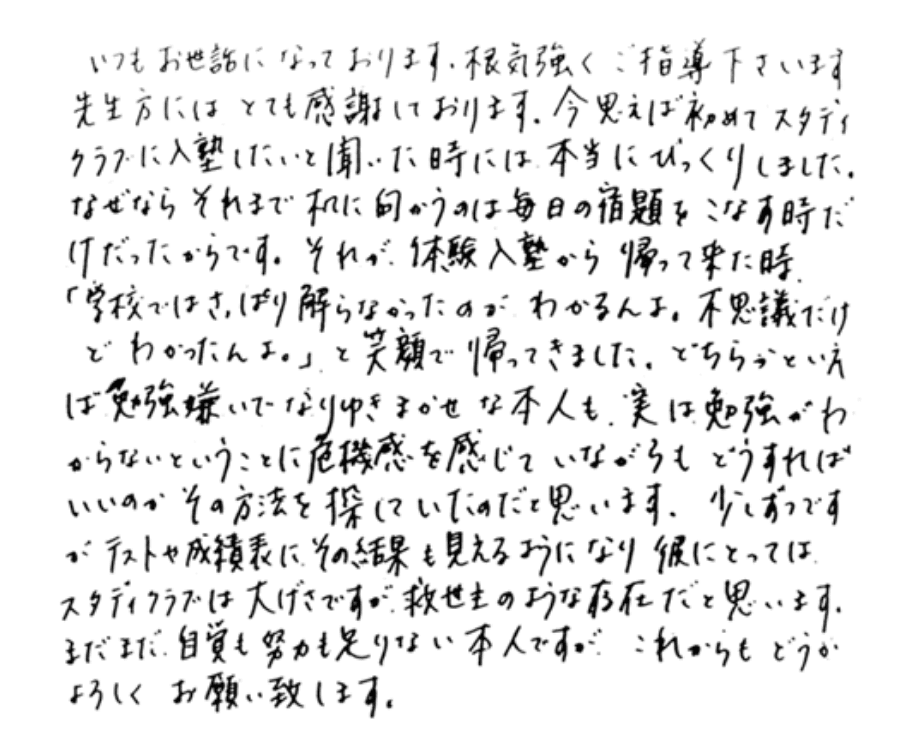 いつもお世話になっております。根気強くご指導下さいます
先生方にはとても感謝しております。今思えば初めてスタディ
クラブに入塾したいと聞いた時には本当にびっくりしました。
なぜならそれまで机に向かうのは毎日の宿題をこなす時だ
けだったからです。それが、体験入塾から帰って来た時、
「学校ではさっぱり解らなかったのがわかるんよ。不思議だけ
どわかったんよ。」と笑顔で帰ってきました。どちらかといえ
ば勉強嫌いでなりゆきまかせな本人も、実は勉強がわ
からないということに危機感を感じていながらもどうすれば
いいのかその方法を探していたのだと思います。少しずつです
がテストや成績表にその結果も見えるようになり彼にとっては
スタディクラブは大げさですが救世主のような存在だと思います。
まだまだ自覚も努力も足りない本人ですが、これからもどうか
よろしくお願い致します。